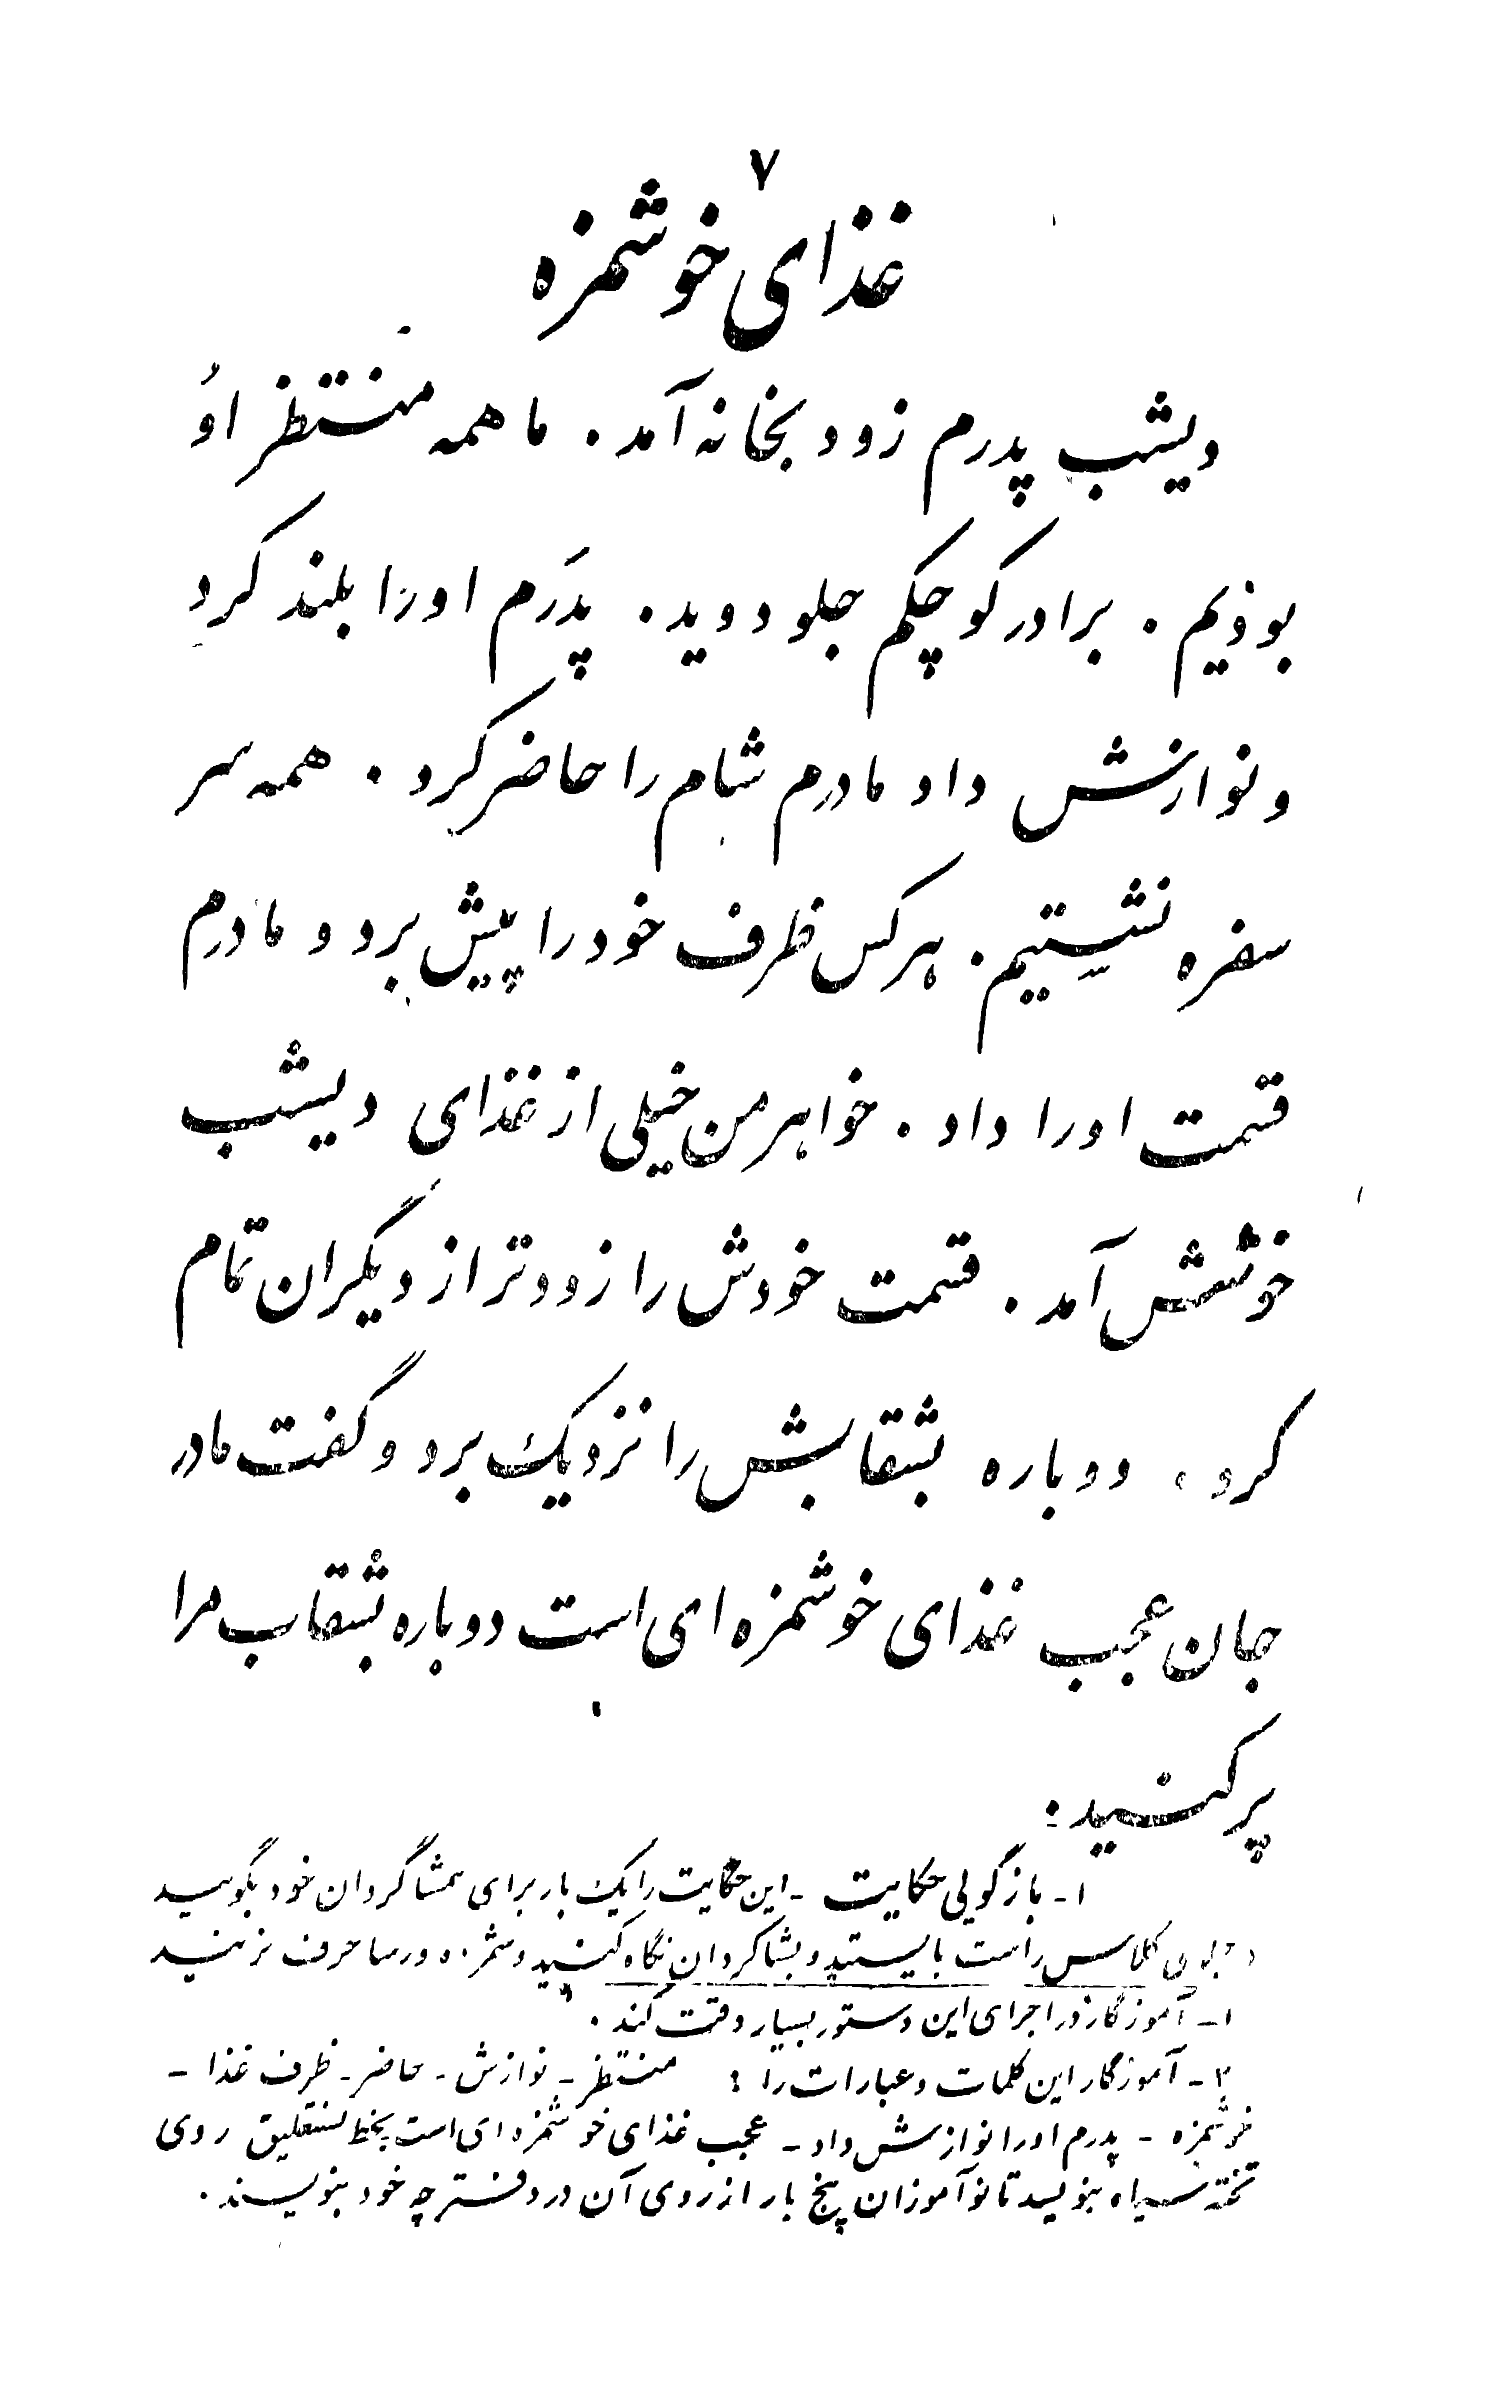 ۷
غذای خوشمزه
دیشب پدرم زود بخانه آمد. ما همه منتظر اوُ
بودیم. برادر کوچکم جلو دوید. پدَرم او را بلند کرد
و نوازنش داد مادرم شام را حاضر کرد. همه سر
سفره نشستیم. هر کس ظرف خود را پیش برد و مادرم
قسمت او را داد. خواهر من خیلی از غذای دیشب
خوشش آمد. قسمت خودش را زودتر از دیگران تمام
کرد، دوباره بشقابش را نزدیک برد و گفت مادر
جان عجب غذای خوشمزه ای است دوباره بشقاب مرا
پر کنید.
۱- بازگویی حکایت - این حکایت را یک بار برای همشاگردان خود بگویید
جلوی کلاس راست بایستید و بشاگردان نگاه کنید و شمرده و رسا حرف بزنید
۱- آموزگار در اجرای این دستور بسیار دقت کند.
۲- آموزگار این کلمات و عبارات را: منتظر - نوازش - حاضر - ظرف غذا -
خوشمزه - پدرم او را نوازش داد - عجب غذای خوشمزه ای است بخط نستعلیق روی
تخته سیاه بنویسد تا نوآموزان پنج بار از روی آن در دفترچه خود بنویسند.